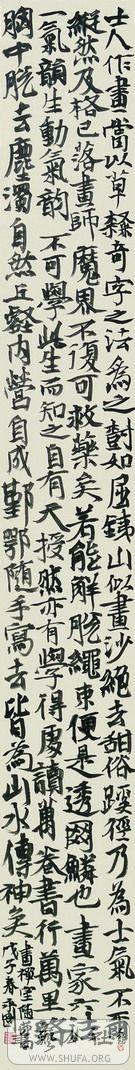 士人作畫當以草隸奇字之法為之樹如屈鐵山似畫沙絕去甜俗蹊徑乃為士氣不爾
縱然及格已落畫師魔界不復可救藥矣若能解脫繩束便是透網鱗也畫家六
一氣韻生動氣韻不可學此生而知之自有天授然亦有學得處讀萬卷書行萬里
胸中脫去塵濁自然丘壑內營自成鄞鄂隨手寫去皆為山水傳神矣
畫禪室隨筆
戊子春
WWW.SHUFA.ORG